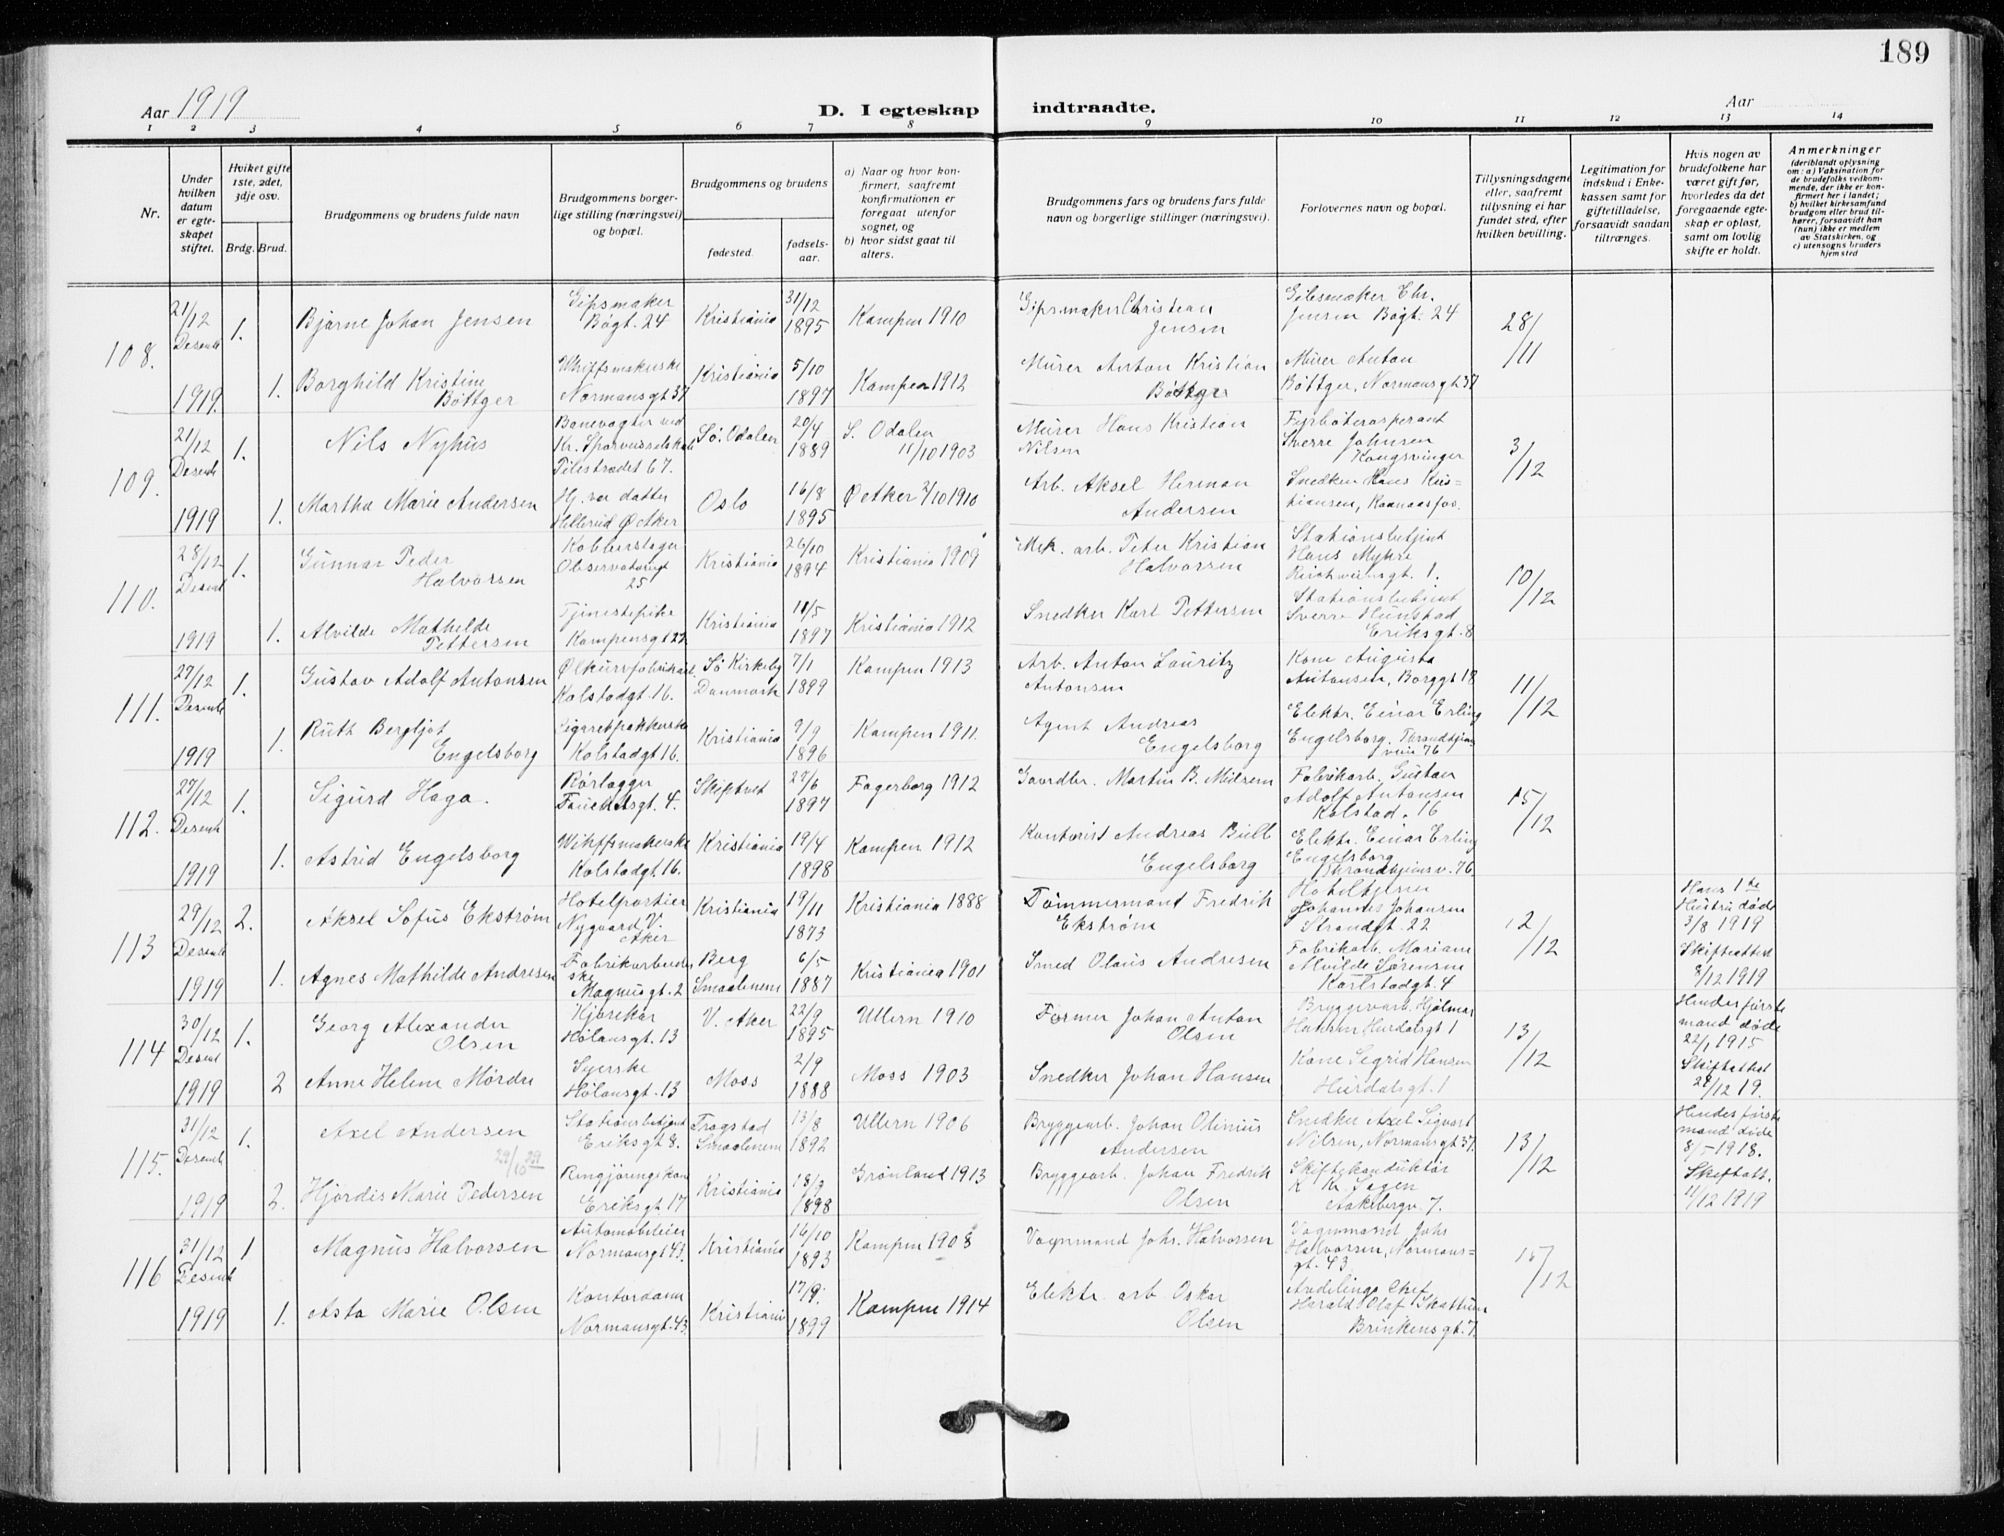 189
Aar 1919
D. I egteskap indtraadte.
Aar
1 2 3 4 5 6 7 8 9 10 11 12 13 14
Nr.
Under hvilken datum er egteskapet stiftet.
Hviket gifte 1ste, 2det, 3dje osv.
Brdg. Brud.
Brudgommens og brudens fulde navn
Brudgommens borgerlige stilling (næringsvei) og bopæl.
Brudgommens og brudens
fødested. fødselsaar.
a) Naar og hvor konfirmert, saafremt konfirmationen er foregaat utenfor sognet, og
b) hvor sidst gaat til alters.
Brudgommens fars og brudens fars fulde navn og borgerlige stillinger (næringsvei).
Forlovernes navn og bopæl.
Tillysningsdagene eller, saafremt tillysning ei har fundet sted, efter hvilken bevilling.
Legitimation for indskud i Enkekassen samt for giftetilladelse, forsaavidt saadan tiltrænges.
Hvis nogen av brudefolkene har været gift før, hvorledes da det foregaaende egteskap er opløst, samt om lovlig skifte er holdt.
Anmerkninger
(deriblandt oplysning om: a) Vaksination for de brudefolks vedkommende, der ikke er konfirmert her i landet; b) hvilket kirkesamfund brudgom eller brud tilhører, forsaavidt han (hun) ikke er medlem av Statskirken, og c) utensogns bruders hjemsted
108. 21/12 Desemb 1919
1. Bjarne Johan Jensen Gipsmaker Bøgt. 24 Kristiania 31/12 1895 Kampen 1910 Gipsmaker Christian Jensen Gibsmaker Chr. Jensen Bøgt. 24 28/11
1. Borghild Kristine Bøttger Normansgt 37 Kristiania 5/10 1897 Kampen 1912 Murer Anton Kristian Bøttger Murer Anton Bøttger, Normansgt 37
109. 21/12 Desemb 1919
1. Nils Nyhus Banevogter ved Kr. Sporveisselskab Pilestrædet 67. Sø. Odalen 20/4 1889 S. Odalen 11/10 1903 Murer Hans Kristian Nilsen Fyrbøteraspirant Sverre Johnsen Kongsvinger 3/12
1. Martha Marie Andersen Hj. vær. datter Hellerud Ø Aker Oslo 16/8 1895 Ø Aker 2/10 1910 Arb. Aksel Herman Andersen Snedker Hans Kristiansen, Raanaasfos.
110. 28/12 Desemb 1919
1. Gunnar Peder Halvorsen Kobberslager Observatoriegt 25 Kristiania 26/10 1894 Kristiania 1909 Mek. arb. Peter Kristian Halvorsen Stationsbetjent Hans Myhre Reichweinsgt. 1. 10/12
1. Alvilde Mathilde Pettersen Tjenestepike Kampensgt 22 Kristiania 11/5 1897 Kristiania 1912 Snedker Karl Pettersen Stationsbetjent Sverre Hunstad Eriksgt. 8
111. 27/12 Desemb 1919
1. Gustav Adolf Antonsen Kolstadgt. 16. Sø Kirkeby Danmark 7/1 1899 Kampen 1913 Arb. Anton Lauritz Antonsen Kone Augusta Antonsen, Borggt 18 11/12
1. Ruth Bergljot Engelsborg Cigaretpakkerske Kolstadgt 16. Kristiania 9/9 1896 Kampen 1911. Agent Andreas Engelsborg Elektr. Einar Erling Engelsborg. Throndhjemsveien 76
112. 27/12 Desemb 1919
1. Sigurd Haga. Rørlægger Fauchaldsgt. 4. Skiptvet 27/6 1897 Fagerborg 1912 Gaardbr. Martin B. Milsem Fabrikarb. Gustav Adolf Antonsen Kolstad. 16 15/12
1. Astrid Engelsborg Kolstadgt. 16. Kristiania 19/4 1898 Kampen 1912 Kontorist Andreas Bull Engelsborg Elektr. Einar Erling Engelsborg Throndhjemsv. 76
113 29/12 Desemb 1919
2. Aksel Sofus Ekstrøm Hotelportier Nygaard V. Aker Kristiania 19/11 1873 Kristiania 1888 Tømmermand Fredrik Ekstrøm Johannes Johansen Strandgt. 22 12/12 Hans 1te Hustru døde 3/8 1919 Skifteattest 8/12 1919
1. Agnes Mathilde Andresen Fabrikarbeiderske Magnusgt. 2 Berg Smaalenene 6/5 1887 Kristiania 1901 Smed Olaus Andresen Fabrikarb. Mariane Alvilde Sørensen Karlstadgt. 4
114 30/12 Desemb 1919
1. Georg Alexander Olsen Kjørekar Hølandsgt. 13 V. Aker 22/9 1895 Ullern 1910 Former Johan Anton Olsen Bryggeriarb. Hjalmar Hansen Hurdalsgt 1 13/12 Hendes første mand døde 22/1 1915 Skifteattest 29/12 19.
2 Anne Helene Mørdre Syerske Hølandsgt. 13 Moss 2/9 1888 Moss 1903 Snedker Johan Hansen Kone Sigrid Hansen Hurdalsgt. 1
115. 31/12 Desemb 1919
1. Axel Andersen Stationsbetjent Eriksgt 8. Trøgstad Smaalenene 13/8 1892 Ullern 1906 Bryggearb. Johan Olinius Andersen Snedker Axel Sigvart Nilsen, Normansgt 37. 13/12 Hendes første mand døde 8/5-1918. Skifteatt. 11/12 1919
2. Hjørdis Marie Pedersen Rengjøringskone Eriksgt 17 Kristiania 18/9 1898 Grønland 1913 Bryggearb. Johan Fredrik Olsen Skiftekonduktør K. Kr. Sagen Aakebergv. 7.
116 31/12 Desemb 1919
1 Magnus Halvorsen Automobileier Normansgt 43. Kristiania 16/10 1893 Kampen 1908 Vognmand Johs. Halvorsen Vognmand Johs Halvorsen, Normansgt. 43 15/12
1. Asta Marie Olsen Kontordame Normansgt. 43. Kristiania 17/9. 1899 Kampen 1914 Elektr. arb. Oskar Olsen Avdelings Chef Harald Olaf Skattum Brinkensgt. 7.